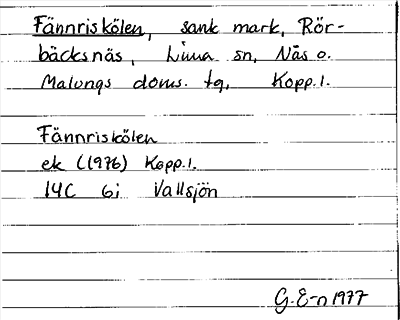 Fännriskölen, sank mark, Rör-
bäcksnäs, Lima sn, Nås o.
Malungs doms. tg, Kopp.l.
Fännriskölen
ek (1976) Kopp.l.
14C 6i Vallsjön
G.E-n 1977